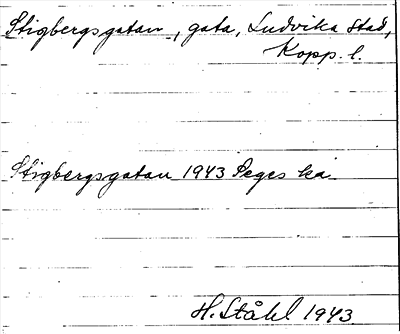 Stigbergsgatan, gata, Ludvika stad,
Kopp. l.
Stigbergsgatan 1943 Seges ka
H. Ståhl 1943